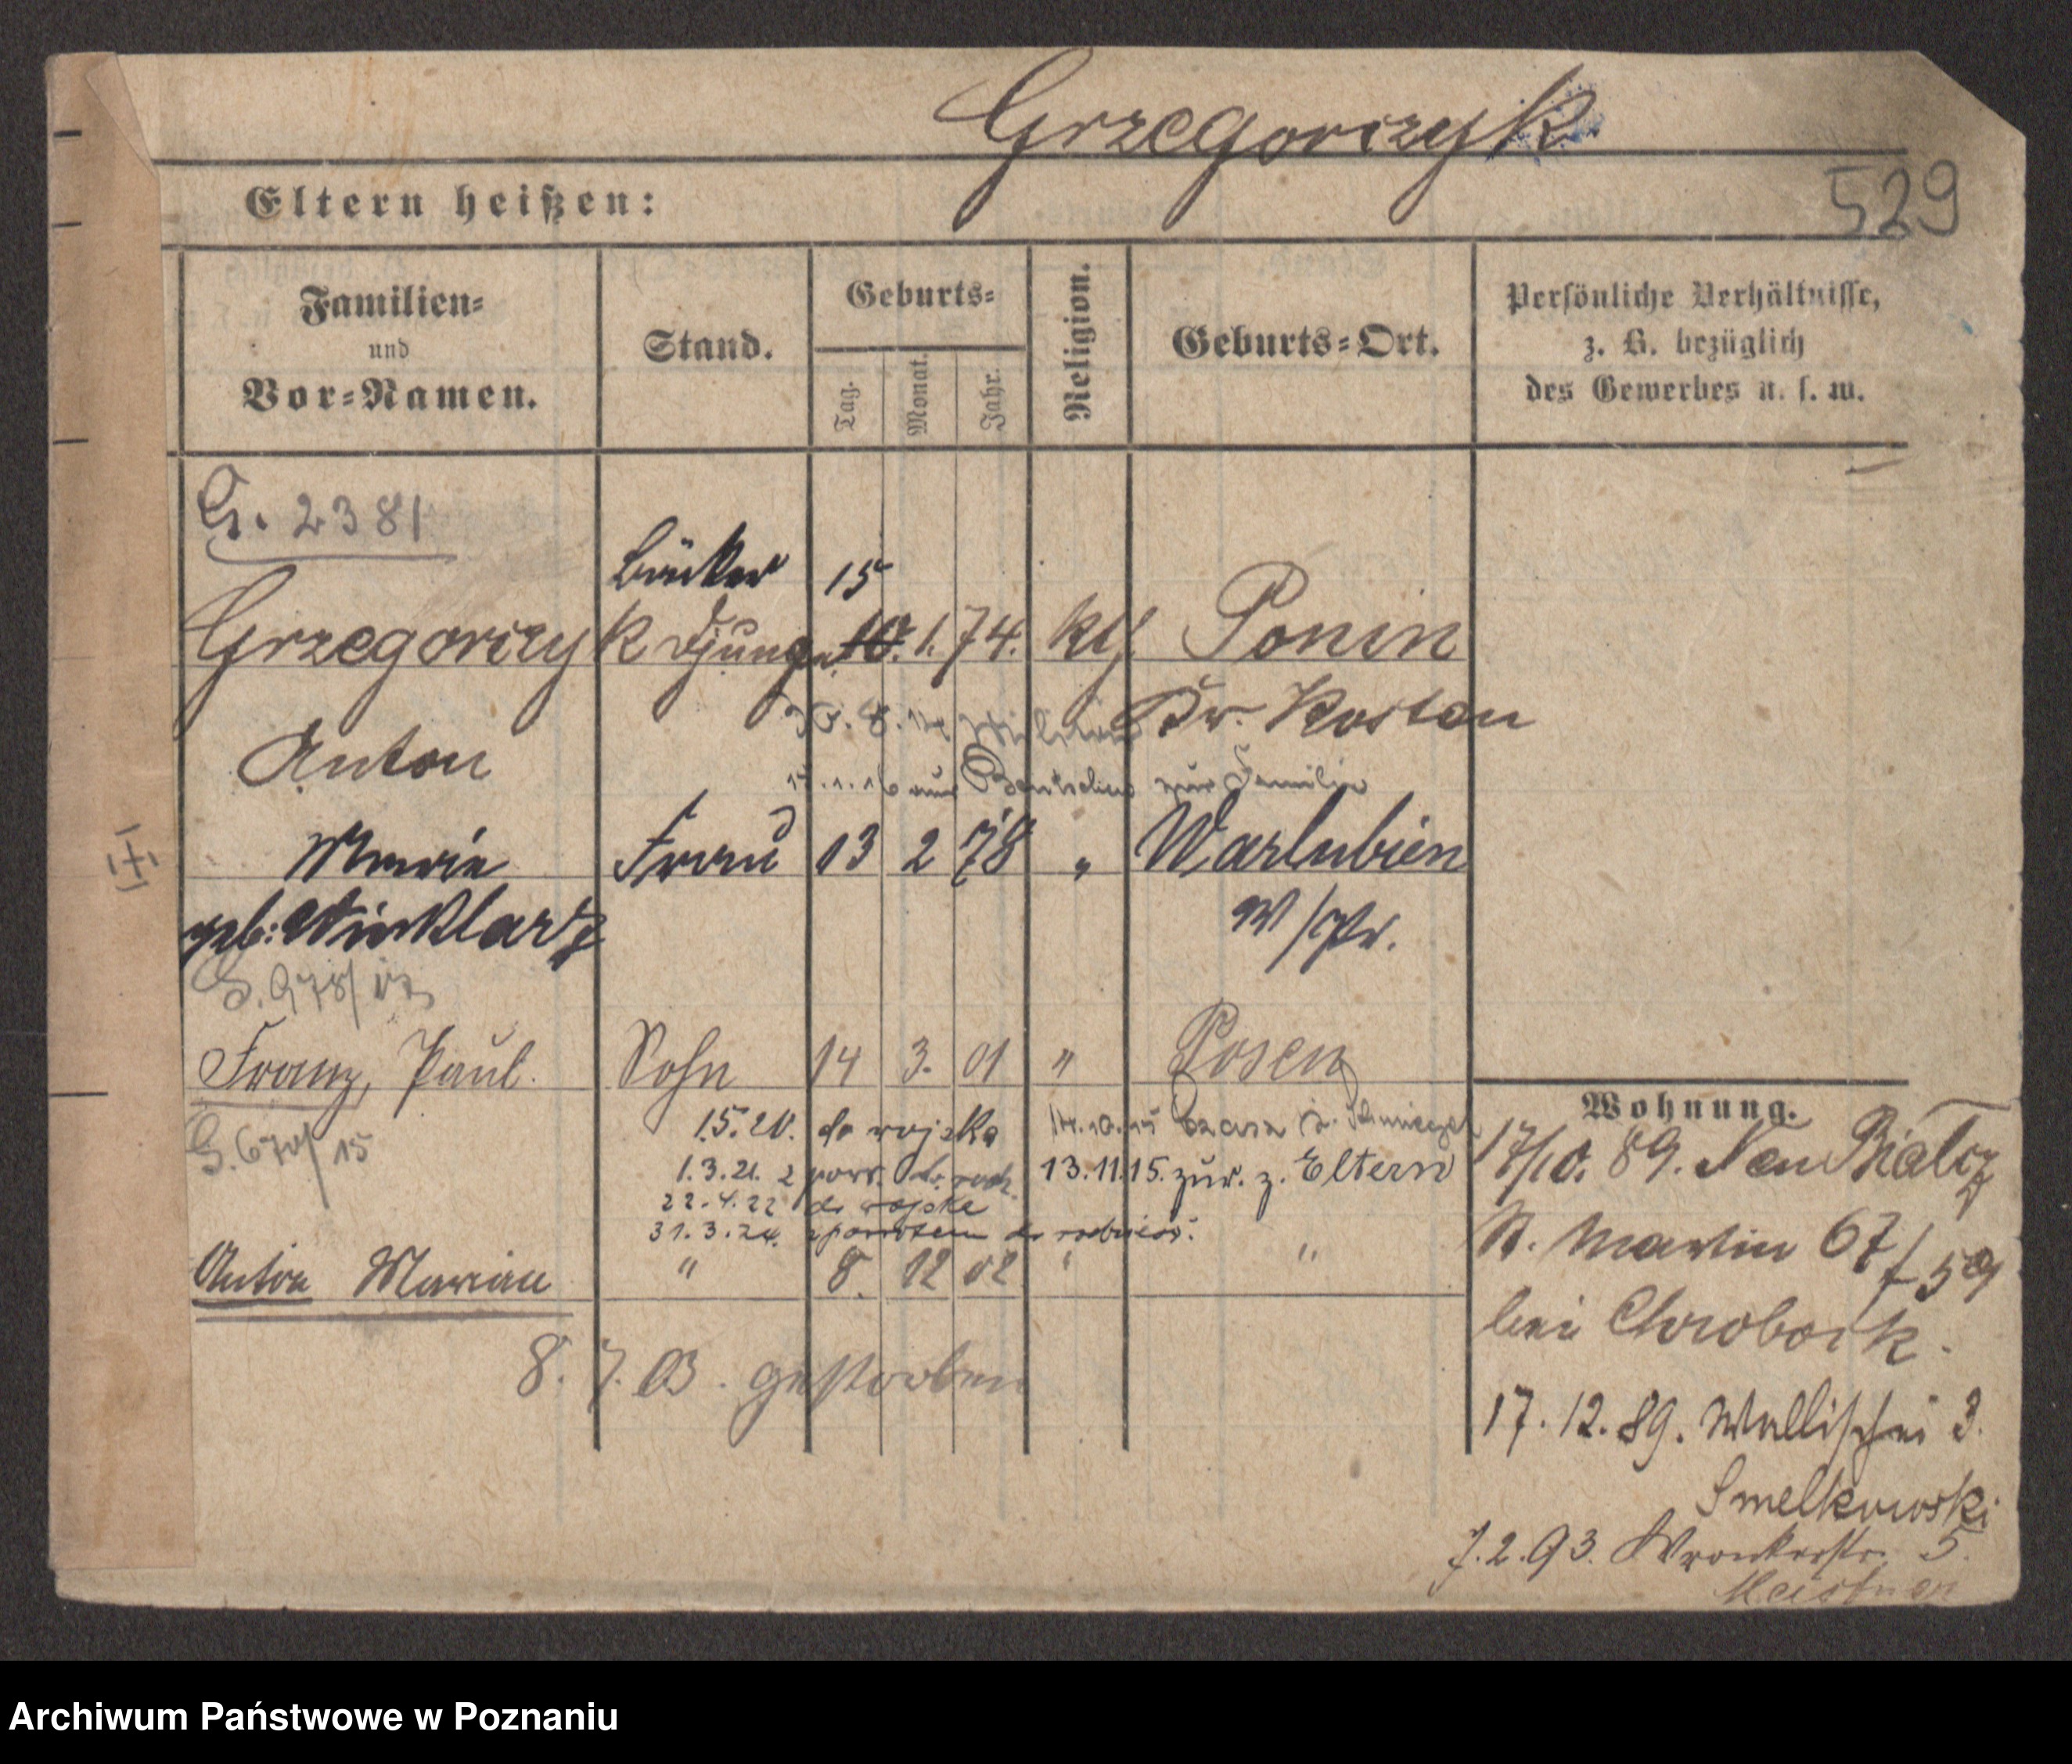 Grzegorczyk
529
Eltern heißen:
Familien-
und
Vor-Namen.
Stand.
Geburts-
Tag.
Monat.
Jahr.
Religion.
Geburts-Ort.
Persönliche Verhältnisse,
z. B. bezüglich
des Gewerbes u. s. w.
G. 2381
Bäcker 15
Grzegorczyk 10. 1. 74. kth Ponin
Anton Kr. Kosten
15.1.16 aus Bentschen zur Familie
Marie Frau 13 2 78 " Warlubien
geb: W/Pr.
Franz, Paul. Sohn 14 3. 01 " Posen
G. 670/15
1.5.20. do wojska
1.3.21. z powr.
13.11.15. zur. z. Eltern
22.4.22 do wojska
31.3.24. z powrotem do rodziców.
Anton Marian " 8. 12 02 " "
8. 7. 03. gestorben
Wohnung.
17/10. 89. Neu Bialcz
St. Martin 67/59
bei Chrobock.
17. 12. 89. Wallischei 3.
Smelkowski
7. 2. 93. Wronkerstr. 5.
Archiwum Państwowe w Poznaniu